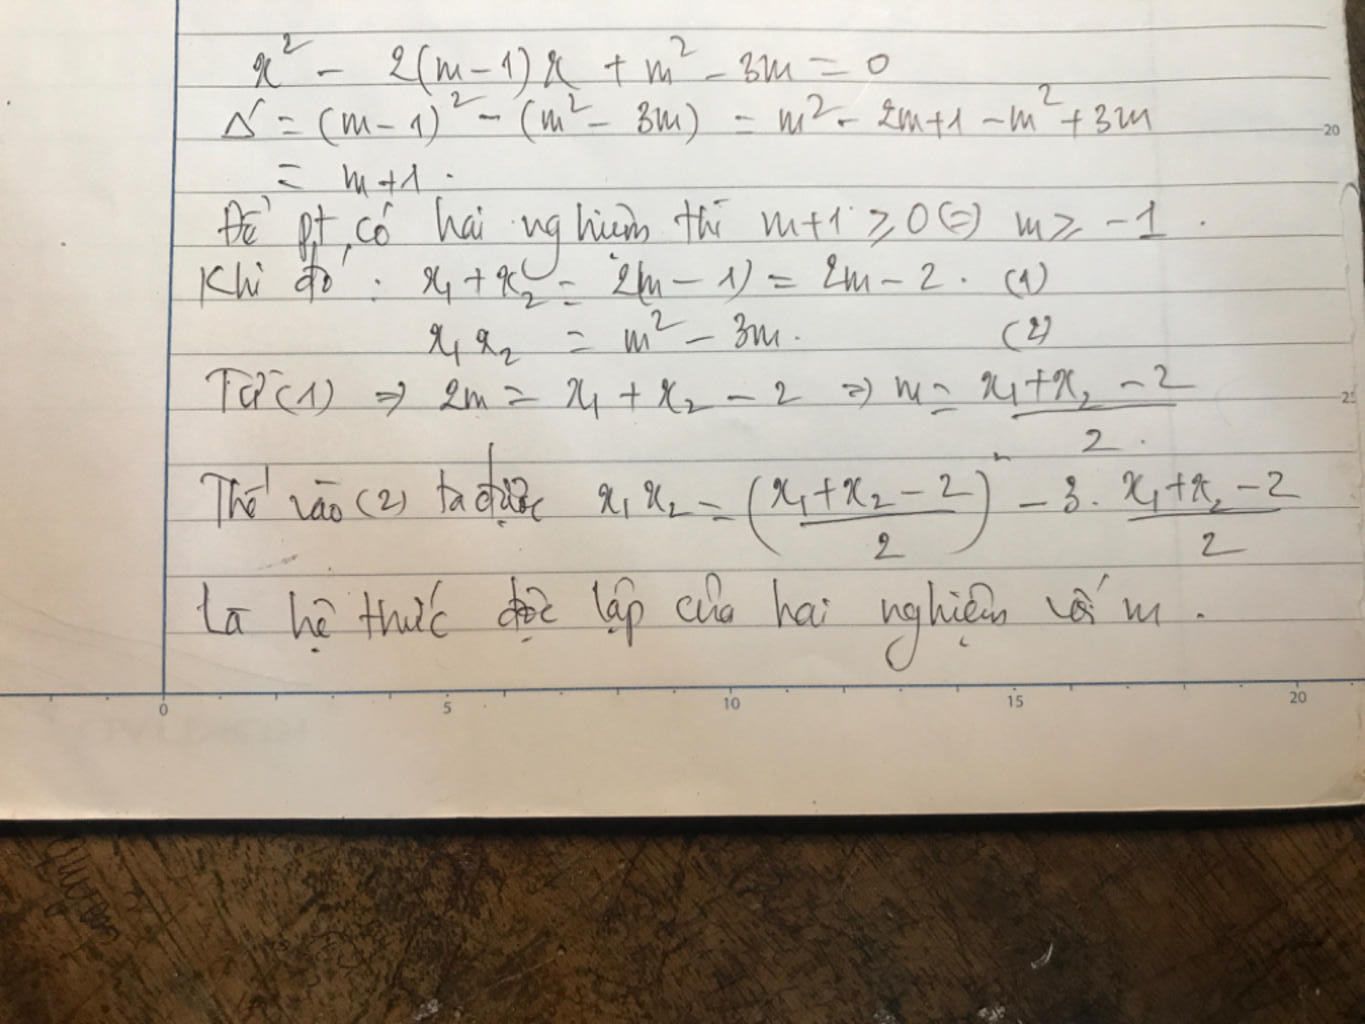 x² - 2(m-1)x + m² - 3m = 0
Δ' = (m-1)² - (m² - 3m) = m² - 2m+1 - m² + 3m
= m+1.
Để pt có hai nghiệm thì m+1 ≥ 0 (=) m ≥ -1.
Khi đó: x₁ + x₂ = 2(m-1) = 2m - 2. (1)
x₁ x₂ = m² - 3m. (2)
Từ (1) ⇒ 2m = x₁ + x₂ - 2 ⇒ m = (x₁+x₂ - 2)/2.
Thế vào (2) ta được x₁ x₂ = ((x₁+x₂ - 2)/2)² - 3. (x₁+x₂ - 2)/2
là hệ thức độc lập của hai nghiệm với m.
20
0 5 10 15 20